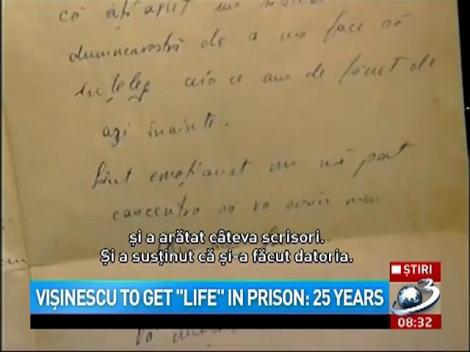 că ați avut un
dumneavoastră de a mă face să
înțeleg ceia ce am de făcut de
azi înainte.
Sînt emoționat nu mă pot
concentra să vă scriu mai
și a arătat câteva scrisori.
Și a susținut că și-a făcut datoria.
VIȘINESCU TO GET "LIFE" IN PRISON: 25 YEARS
ȘTIRI
3
08:32